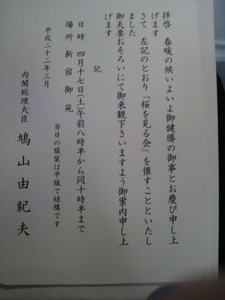 拝啓 春暖の候いよいよ御健勝の御事とお慶び申し上
げます
さて 左記のとおり「桜を見る会」を催すことといたし
ました
御夫妻おそろいにて御来観下さいますよう御案内申し上
げます
記
日時 四月十七日(土)午前八時半から同十時半まで
場所 新宿御苑
当日の服装は平服で結構です
平成二十二年三月
内閣総理大臣
鳩山由紀夫